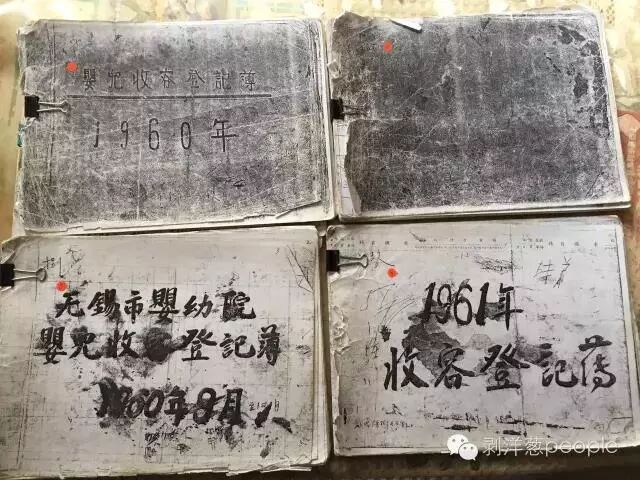 嬰兒收容登記薄
1960年
无錫市嬰幼院
嬰兒收容登記薄
1960年8月
1961年
收容登記薄
剥洋葱people